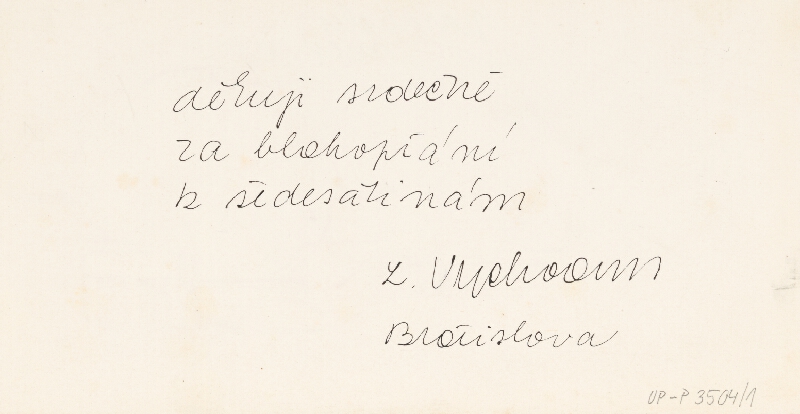 děkuji srdečně
za blahopřání
k šedesátinám
L. Vychodil
Bratislava
UP-P 3504/1